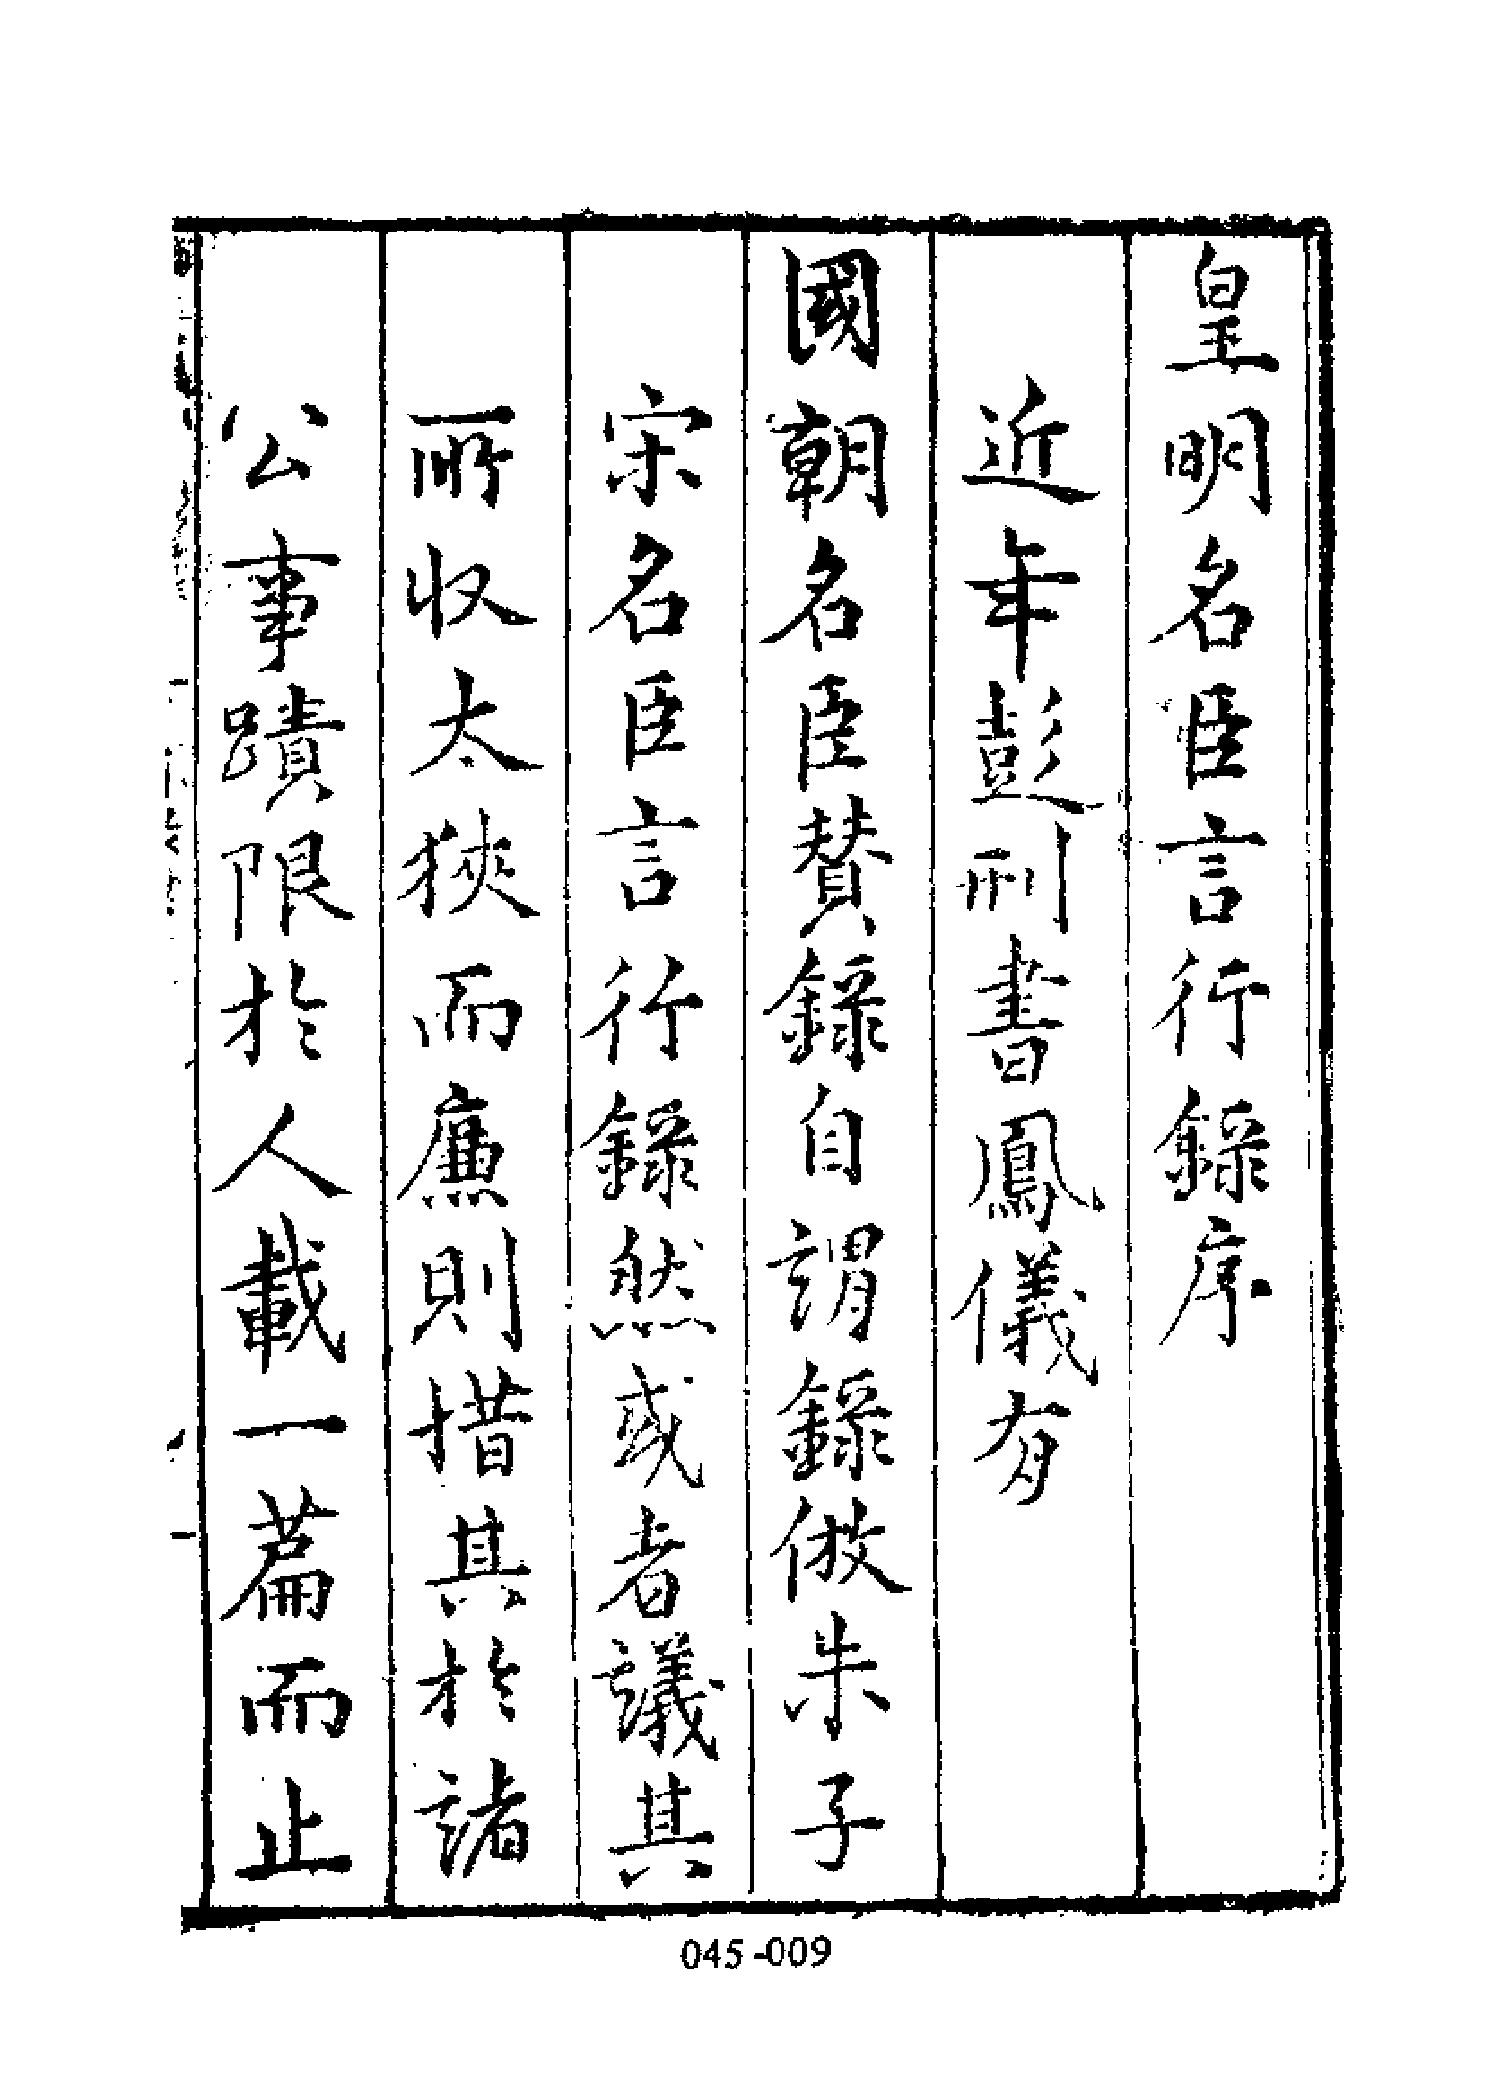 皇明名臣言行錄序
近年彭刑書鳳儀有
國朝名臣贊錄自謂錄倣朱子
宋名臣言行錄然或者議其
所收太狹而廉則惜其於諸
公事蹟限於人載一篇而止
045-009